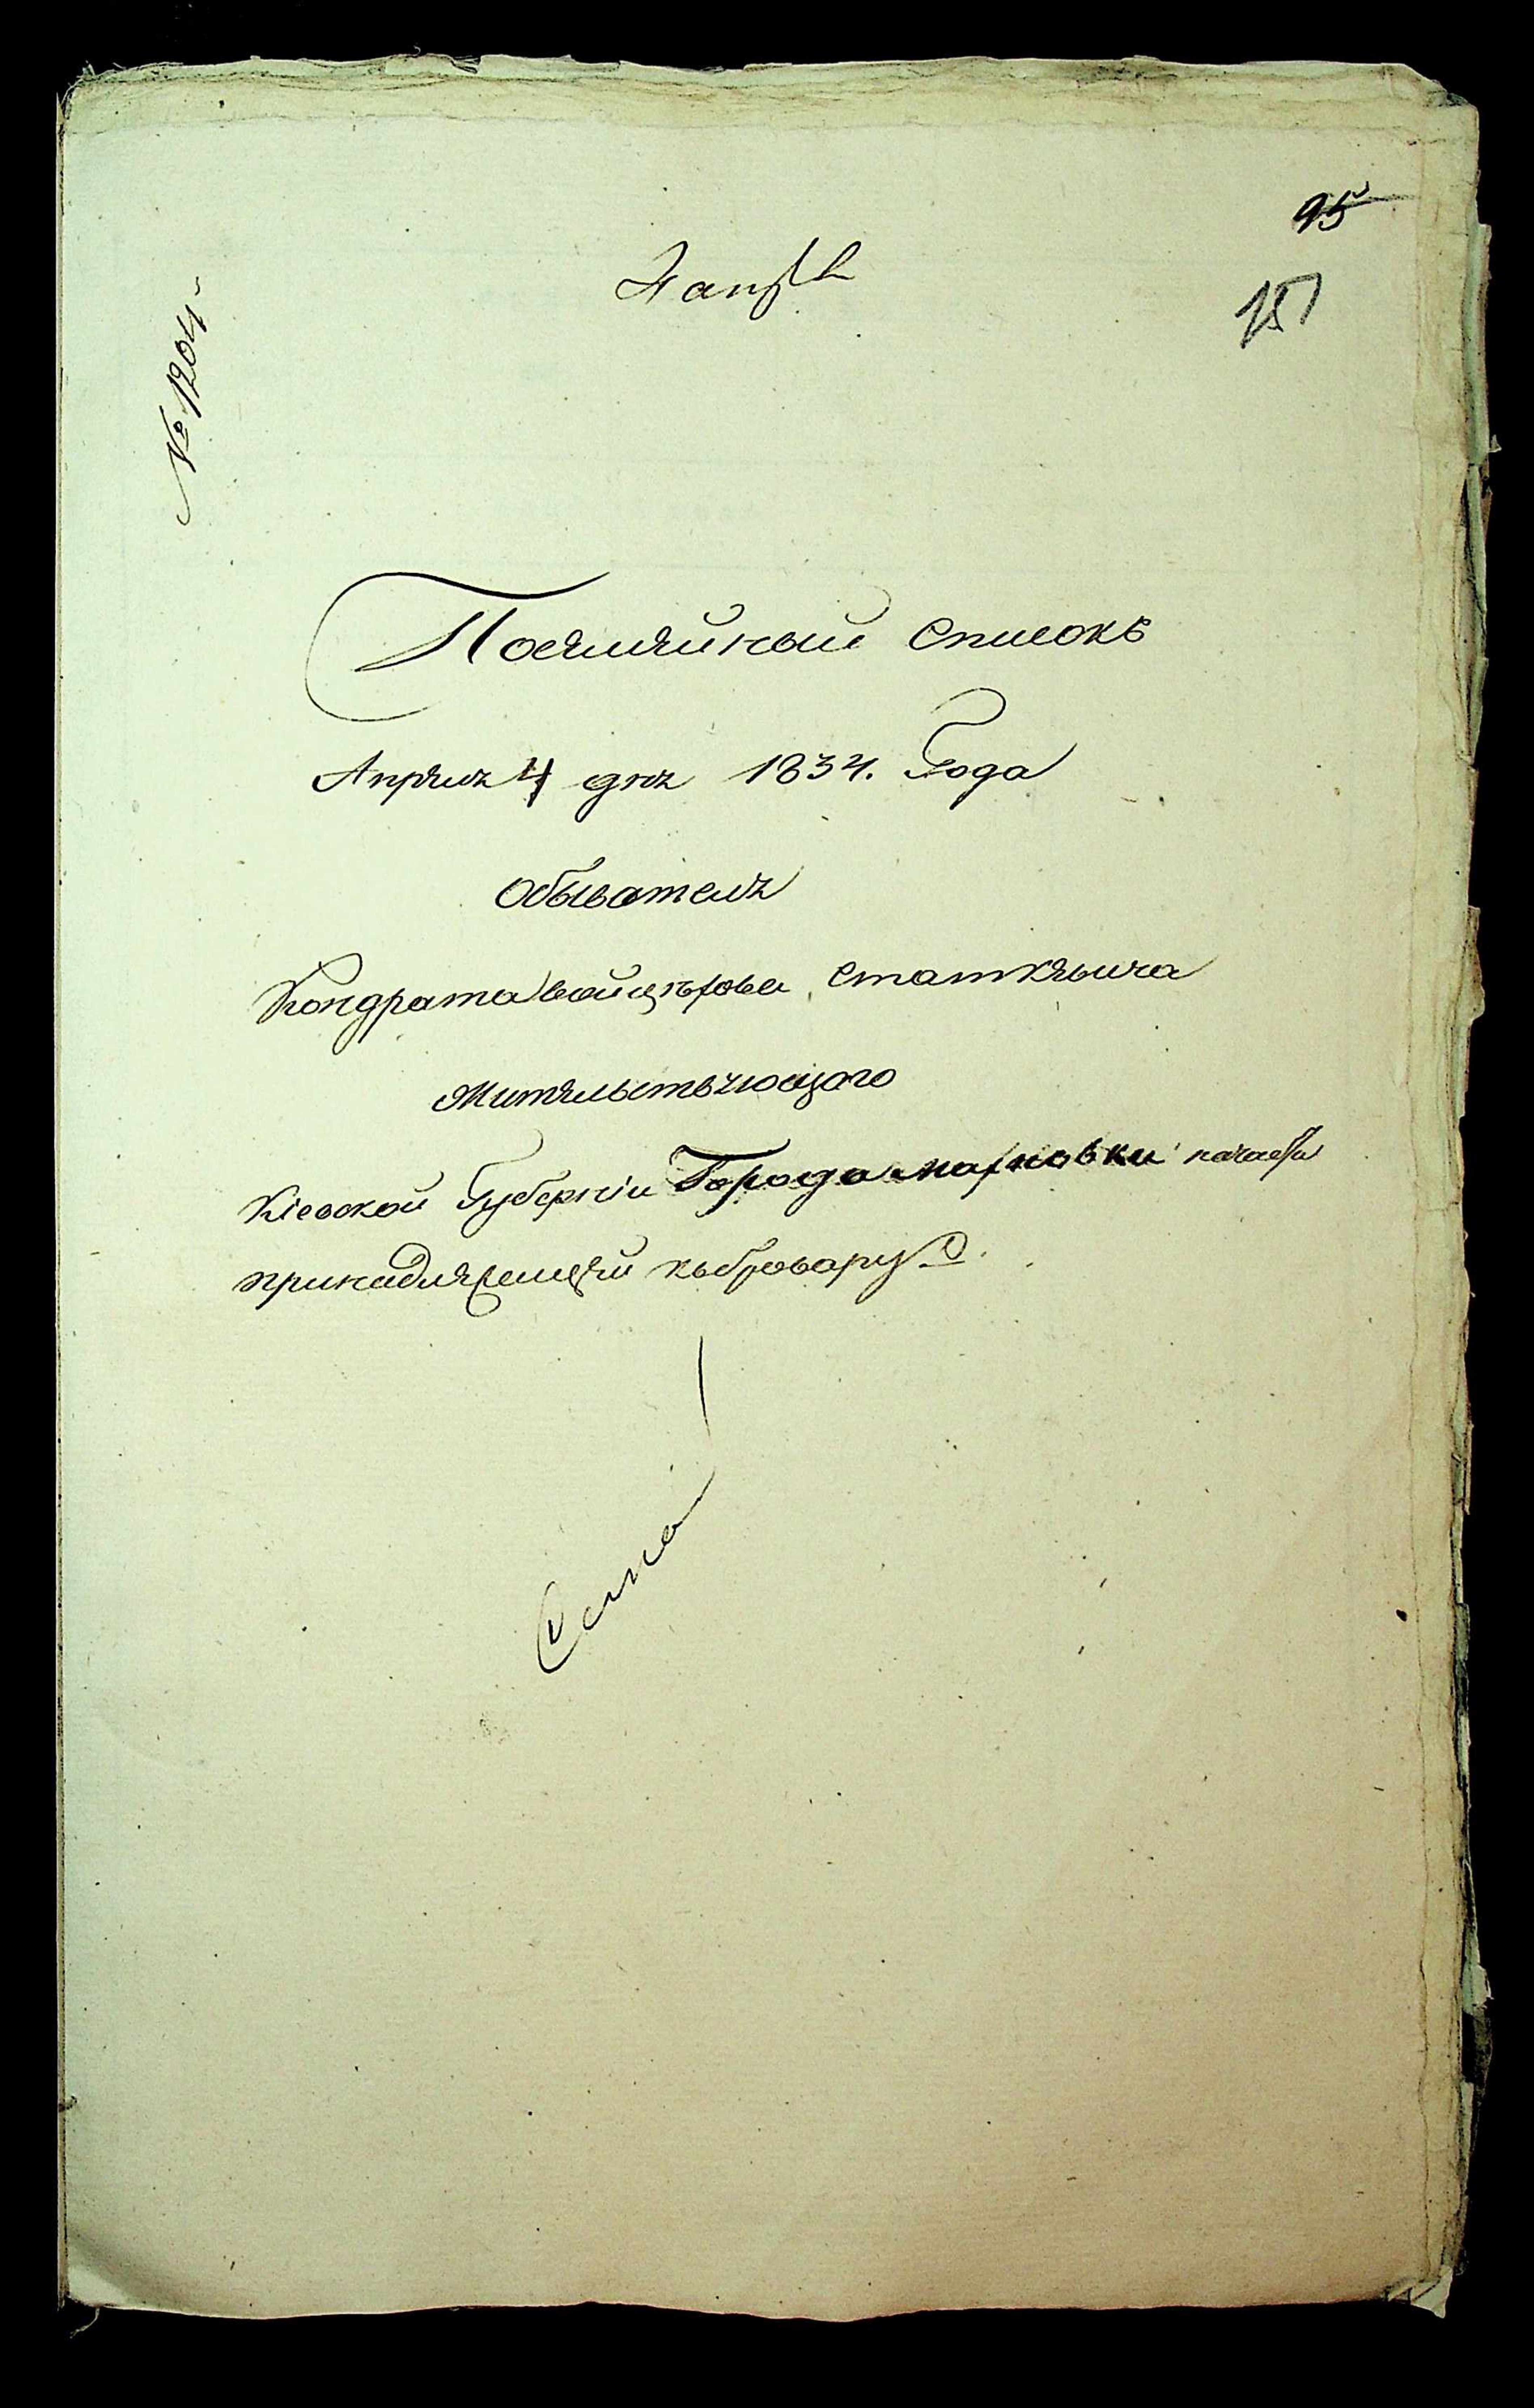 95
151
№ 1204
Посямѣйный Списокъ
Апрѣля 4 дня 1834. Года
Обывателя
Кондрата Войцѣхова Статкѣвича
Жителствующаго
Кіевской Губерніи Города Махновки
принадлежещей къ бровару